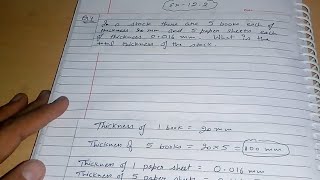 Ex-12.2
Q.4 In a stack there are 5 books each of
thickness 20 mm and 5 paper sheets each
of thickness 0.016 mm. What is the
total thickness of the stack.
Thickness of 1 book = 20 mm
Thickness of 5 books = 20×5 = 100 mm
Thickness of 1 paper sheet = 0.016 mm
Thickness of 5 paper sheets =